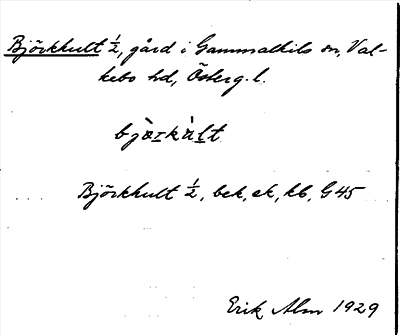 Björkhult ½, gård i Gammalkils sn, Val-
kebo hd, Österg. l.
bjö̀rkúlt
Björkhult ½, bek, ek, kb, G 45
Erik Alm 1929